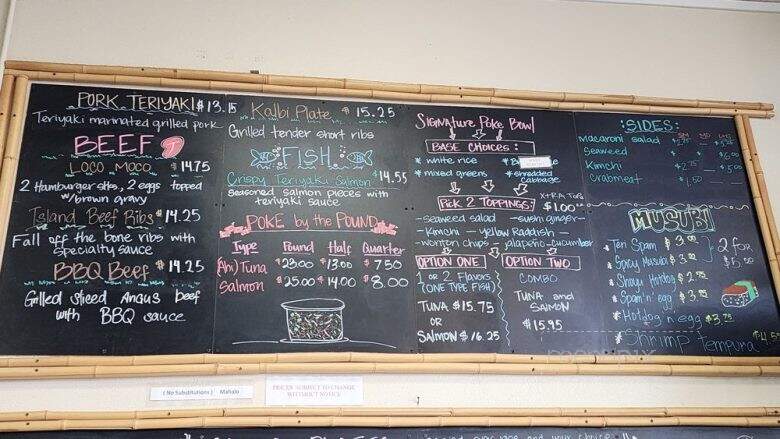 PORK TERIYAKI $13.15
Teriyaki marinated grilled pork
BEEF
LOCO MOCO $14.75
2 Hamburger stks, 2 eggs topped
w/brown gravy
Island Beef Ribs $14.25
Fall off the bone ribs with
specialty sauce
BBQ Beef $14.25
Grilled sliced Angus beef
with BBQ sauce
Kalbi Plate $15.25
Grilled tender short ribs
FISH
Crispy Teriyaki Salmon $14.55
seasoned salmon pieces with
teriyaki sauce
POKE by the POUND
Type Pound Half Quarter
(Ahi) Tuna $23.00 $13.00 $7.50
Salmon $25.00 $14.00 $8.00
Signature Poke Bowl
BASE CHOICES:
* white rice
* mixed greens * shredded
cabbage
Pick 2 Toppings! XTRA Tops
$1.00
-seaweed salad -sushi ginger-
-Kimchi -yellow Raddish-
-wonton chips -jalapeño -cucumber
OPTION ONE
1 or 2 Flavors
(ONE TYPE FISH)
TUNA $15.75
OR
SALMON $16.25
OPTION TWO
COMBO
TUNA and
SALMON
$15.95
:SIDES:
SM MD LG
Macaroni salad
Seaweed
Kimchi
Crabmeat
MUSUBI
* Teri Spam $3.00
* Spicy Musubi $3.00
2 for
$5.00
* Shoyu Hotdog
* Spam n' egg
* Hotdog n' egg $3.75
* Shrimp Tempura
( No Substitutions ) Mahalo
PRICES SUBJECT TO CHANGE
WITHOUT NOTICE